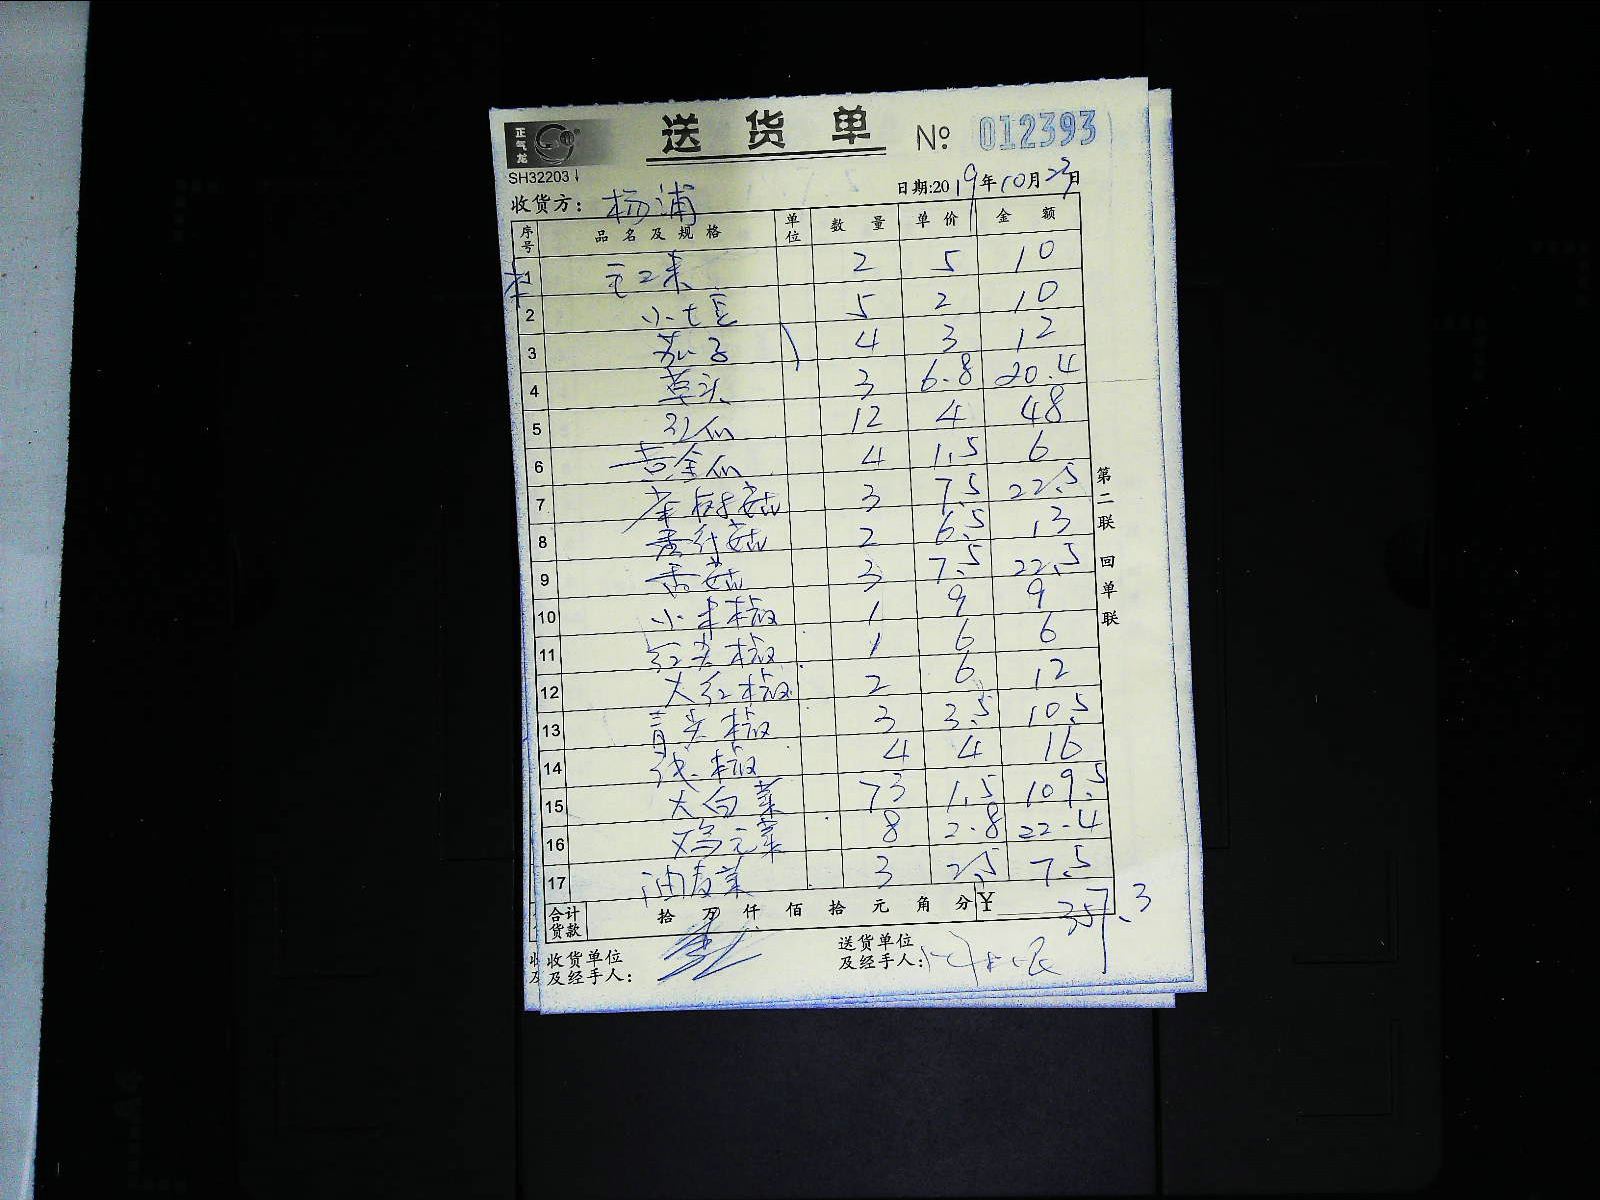 正气龙
送货单 № 012393
SH32203
收货方: 杨浦 日期:2019年10月23日
序号 品名及规格 单位 数量 单价 金额
1 毛白菜 2 5 10
2 小土豆 5 2 10
3 茄子 4 3 12
4 草头 3 6.8 20.4
5 红瓜 12 4 48
6 黄金瓜 4 1.5 6
7 茶树菇 3 7.5 22.5
8 秀珍菇 2 6.5 13
9 香菇 3 7.5 22.5
10 小米椒 1 9 9
11 红尖椒 1 6 6
12 大红椒 2 6 12
13 青尖椒 3 3.5 10.5
14 线椒 4 4 16
15 大白菜 73 1.5 109.5
16 鸡毛菜 8 2.8 22.4
17 油麦菜 3 2.5 7.5
合计货款 拾 万 仟 佰 拾 元 角 分 ¥ 357.3
收货单位及经手人:
送货单位及经手人:
第二联 回单联